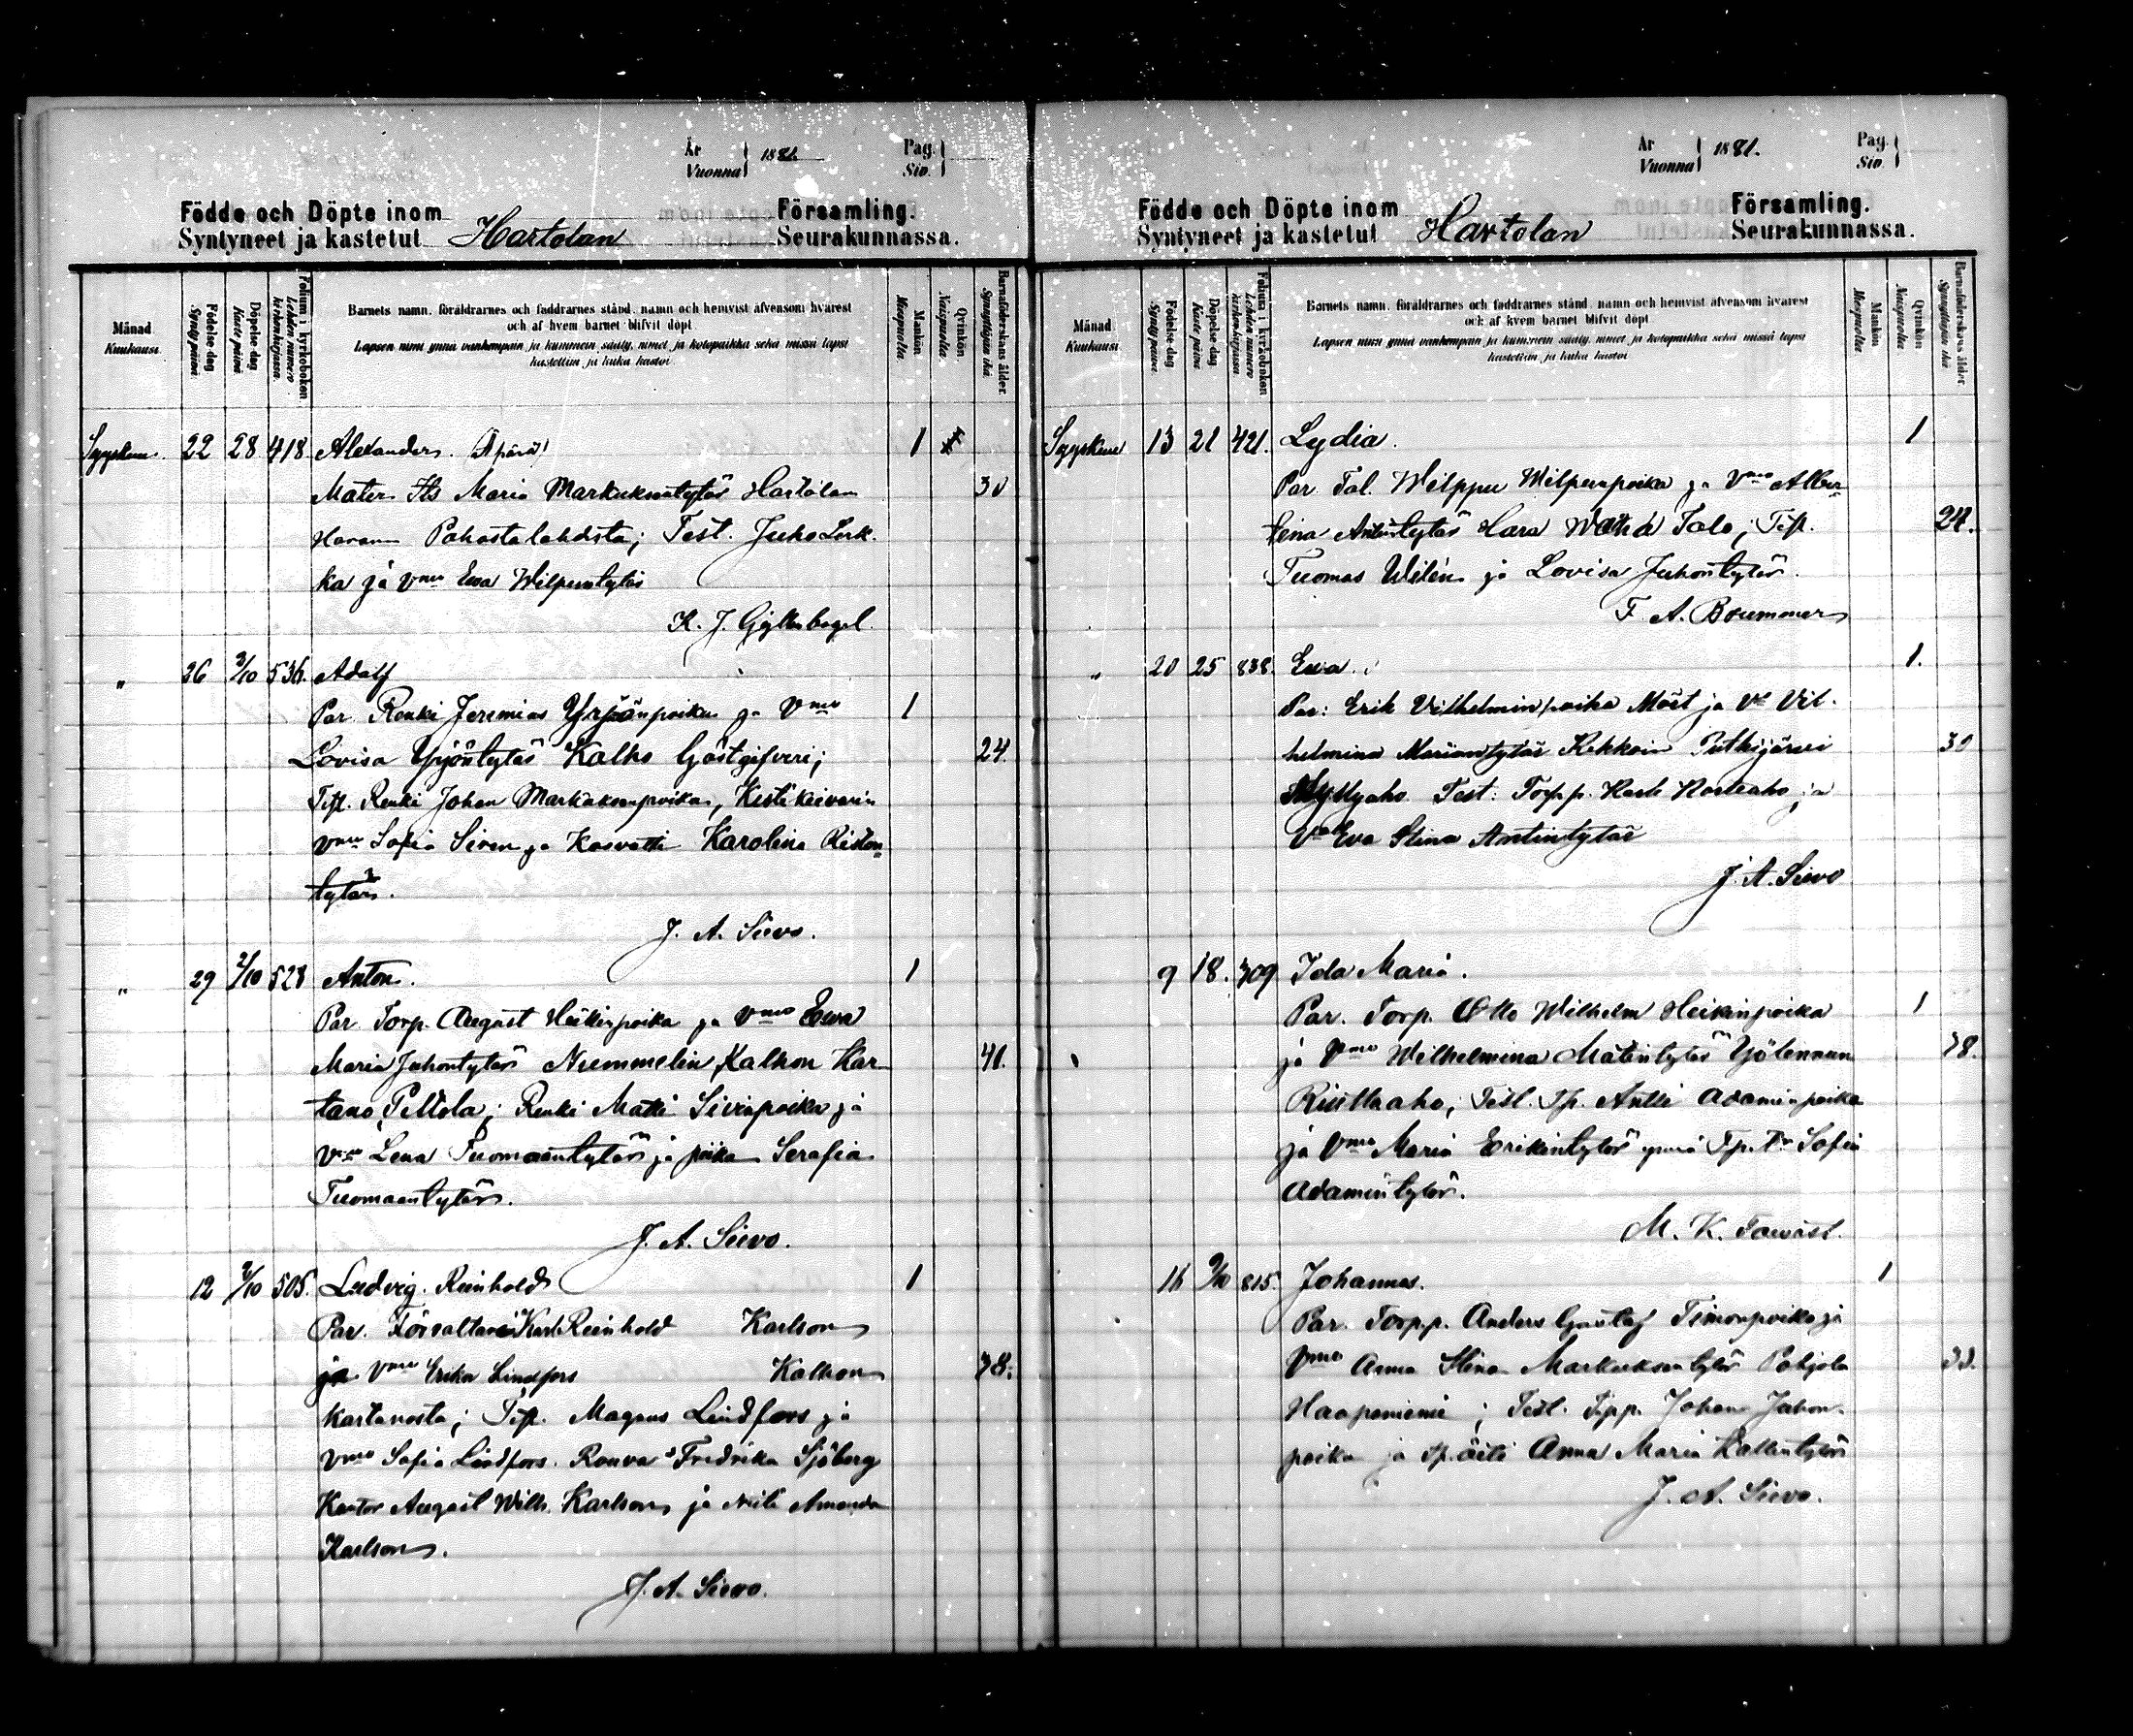 År
Vuonna 1881.
Pag.
Siv.
Födde och Döpte inom
Syntyneet ja kastetut Hartolan
Församling.
Seurakunnassa.
Månad
Kuukausi.
Födelse dag
Synty päivä.
Döpelse dag
Kaste päivä
Folium i kyrkoboken
Lehden numero kirkonkirjassa.
Barnets namn, föräldrarnes och faddrarnes stånd, namn och hemvist äfvensom hvarest
och af hvem barnet blifvit döpt
Lapsen nimi ynnä vanhempain ja kummein sääty, nimet ja kotopaikka sekä missä lapsi
kastettiin ja kuka kastoi
Mankön
Miespuolta
Qvinkön
Naispuolta.
Barnaföderskans ålder.
Synnyttäjän ikä.
Syyskuu 22 28 418. Alexander. Äpärä 1
Mater Its Maria Markuksentytär Hartolan 30
Pohostalahdsta; Test. Juho Lerk-
ka ja Vmo Ewa Wilpuntytär
K. J. Gyllenbogel.
" 26 3/10 536. Adolf
Par. Renki Jeremias Yrjönpoika ja Vmo 1
Lovisa Yrjöntytär Kalho Gästgifveri; 24.
Test. Renki Johan Markuksenpoika, Kestikievarin
Vmo Sofia Siren ja Kasvatti Karolina Riston-
tytär.
J. A. Sievo.
" 29 2/10 528 Anton. 1
Par. Torp. August Heikinpoika ja Vmo Ewa
Maria Juhontytär Nummelin, Kalhon Kar- 41.
tano, Peltola; Renki Matti Sivinpoika ja
Vmo Lena Tuomaantytär ja piika Serafia
Tuomaantytär.
J. A. Sievo.
12 2/10 505. Ludvig Reinhold 1
Par. Förvaltare Karl Reinhold Karlson
ja Vmo Erika Lindfors Kalhon 38.
Kartanosta; Test. Magnus Lindfors ja
Vmo Sofia Lindfors. Rouva Fredrika Sjöberg
Kantor August Wilh. Karlson ja Neiti Amanda
Karlson.
J. A. Sievo.
År
Vuonna 1881.
Pag.
Siv.
Födde och Döpte inom
Syntyneet ja kastetut Hartolan
Församling.
Seurakunnassa.
Månad
Kuukausi
Födelse dag
Synty päivä.
Döpelse dag
Kaste päivä
Folium i kyrkoboken
Lehden numero kirkonkirjassa.
Barnets namn, föräldrarnes och faddrarnes stånd, namn och hemvist äfvensom hvarest
och af hvem barnet blifvit döpt
Lapsen nimi ynnä vanhempain ja kummein sääty, nimet ja kotopaikka sekä missä lapsi
kastettiin ja kuka kastoi
Mankön
Miespuolta
Qvinkön
Naispuolta.
Barnaföderskans ålder
Synnyttäjän ikä
Syyskuu 13 21 421. Lydia. 1
Par. Tal. Wilppu Wilpunpoika ja Vmo Alber-
tina Antintytär Hara Talo; Test. 24.
Tuomas Wilén ja Lovisa Juhontytär.
F. A. Brummer
" 20 25 838. Ewa. 1.
Par: Erik Vilhelminpoika Möst ja Vo Vil-
helmina Mariantytär Kekkoin Putkijärvi 30
Myllyaho. Test: Torpp. Karl Korteaho ja
Vmo Eva Stina Antintytär
J. A. Sievo
9 18. 309 Ida Maria.
Par. Torp. Otto Wilhelm Heikinpoika 1
ja Vmo Wilhelmina Matintytär Yölennun 38.
Riuttaaho; Test. Tp. Antti Adaminpoika
ja Vmo Maria Erikintytär ynnä Tp. Tr Sofia
Adamintytär.
M. K. Tawast.
16 9/10 815. Johannes. 1
Par. Torpp. Anders Gustaf Timonpoika ja
Vmo Anna Stina Markuksentytär Pohjola 33.
Haapaniemi; Test. Tpp. Johan Juhon-
poika ja Tp. äiti Anna Maria Kallentytär
J. A. Sievo.